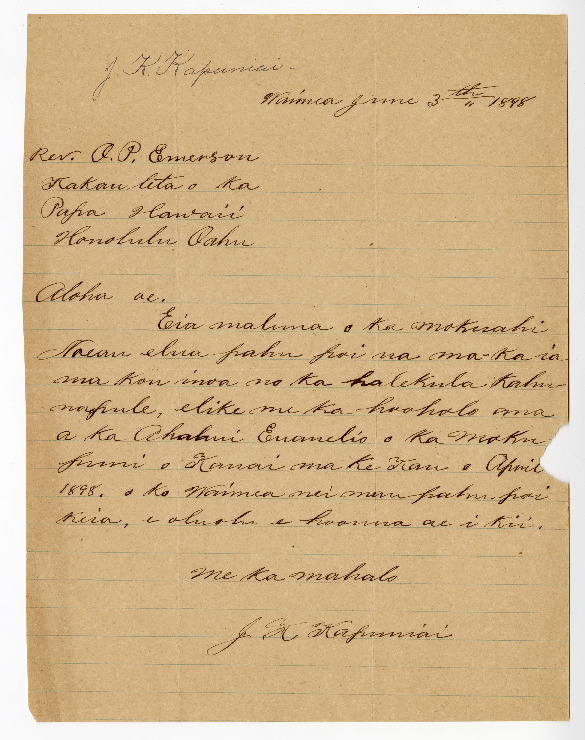 J. K. Kapuniai.
Waimea June 3th 1898
Rev. O. P. Emerson
Kakauleta o ka
Papa Hawaii
Honolulu Oahu
Aloha oe.
Eia maluna o ka mokuahi
elua pahu poi ua ma-ka ia
ma kou inoa no ka halekula kahu-
napule, elike me ka hooholo ana
a ka Ahahui Euanelio o ka Moku-
puni o Kauai ma ke Kau o April
1898. o ko Waimea nei mau pahu poi
keia, e oluolu e hoouna ae i kii.
Me ka mahalo
J. K. Kapuniai